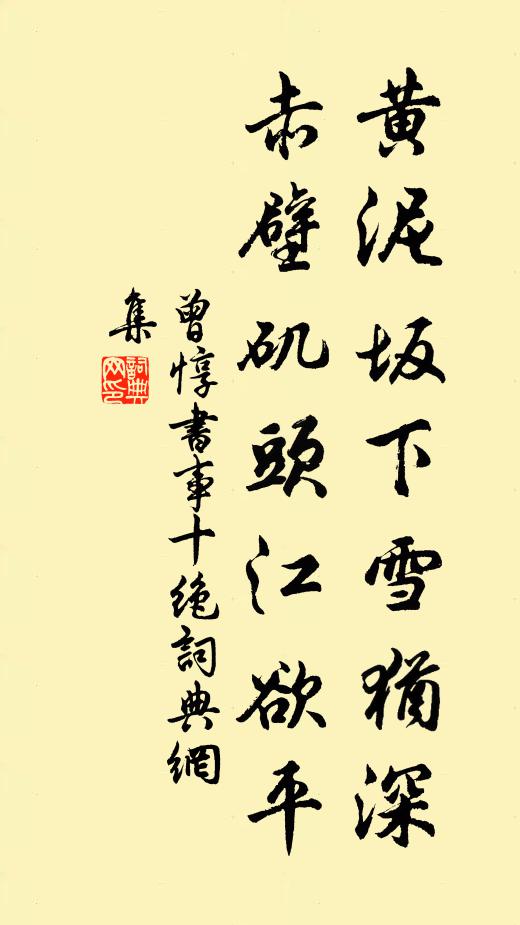 黄泥坂下雪猶深
赤壁矶頭江欲平
曾惇書事十絶詞典網
集
詞典
网印